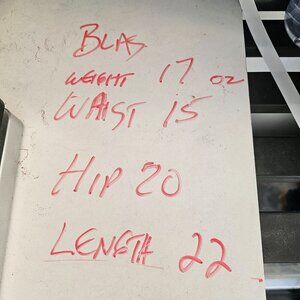 BLAS
WEIGHT 17 OZ
WAIST 15
HIP 20
LENGTH 22